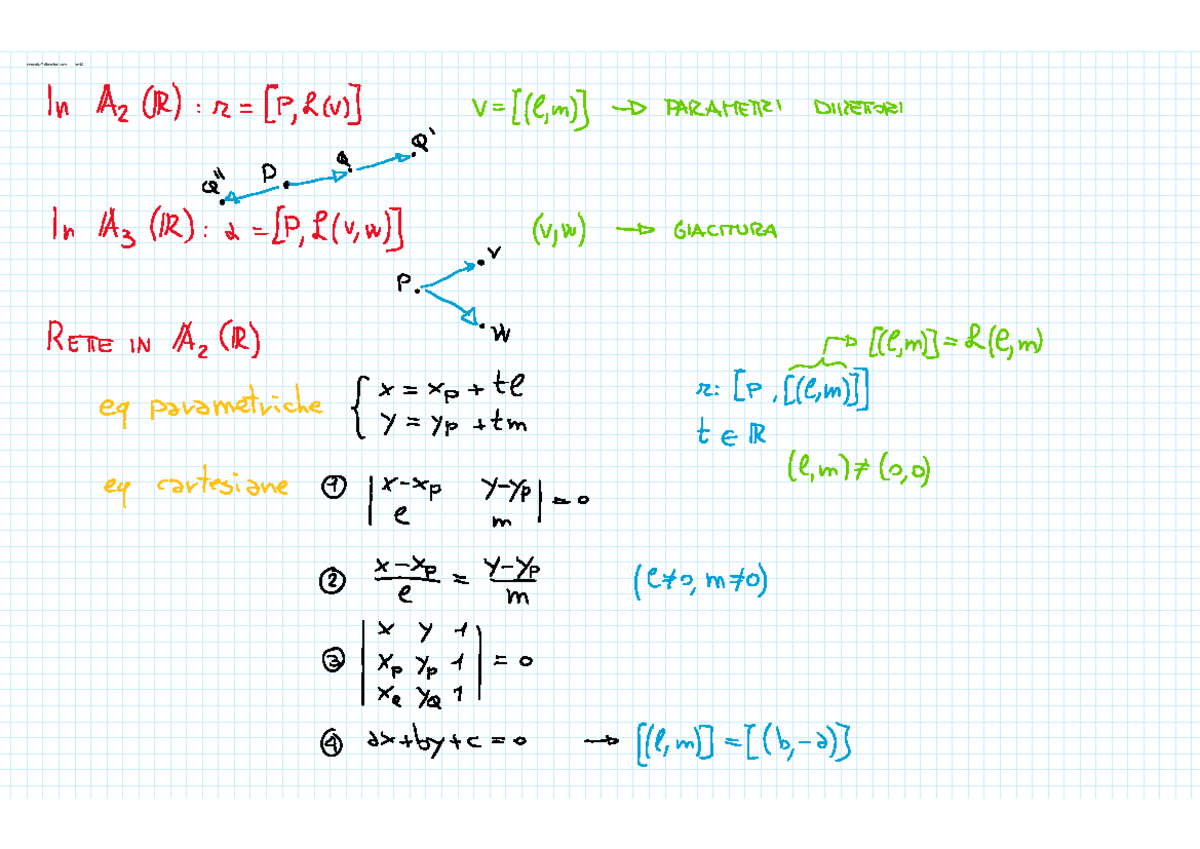 In A₂ (ℝ) : r = [P, L(v)]
V = [(l,m)] → PARAMETRI DIRETTORI
Q'' P Q Q'
In A₃ (ℝ) : α = [P, L(v,w)]
(v,w) → GIACITURA
P V
W
RETTE IN A₂ (ℝ)
→ [(l,m)] = L(l,m)
eq parametriche { x = xₚ + tl
y = yₚ + tm
r: [P, [(l,m)]]
t ∈ ℝ
(l,m) ≠ (0,0)
eq cartesiane ① | x-xₚ y-yₚ | = 0
l m
② x-xₚ / l = y-yₚ / m (l≠0, m≠0)
③ | x y 1 |
| xₚ yₚ 1 | = 0
| x_Q y_Q 1 |
④ ax+by+c=0 → [(l,m)] = [(b,-a)]